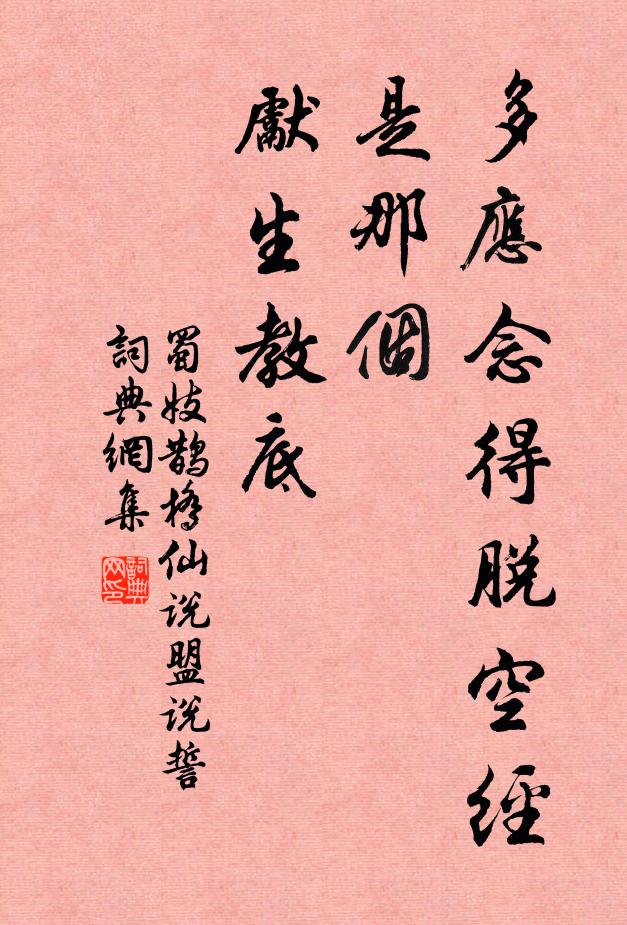 多應念得脱空經
是那個
獻生教底
蜀妓鵲橋仙说盟说誓
詞典網集
詞典
网印